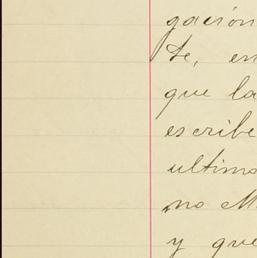 gación
te, en
que la
escribe
ultimo
no M
y que